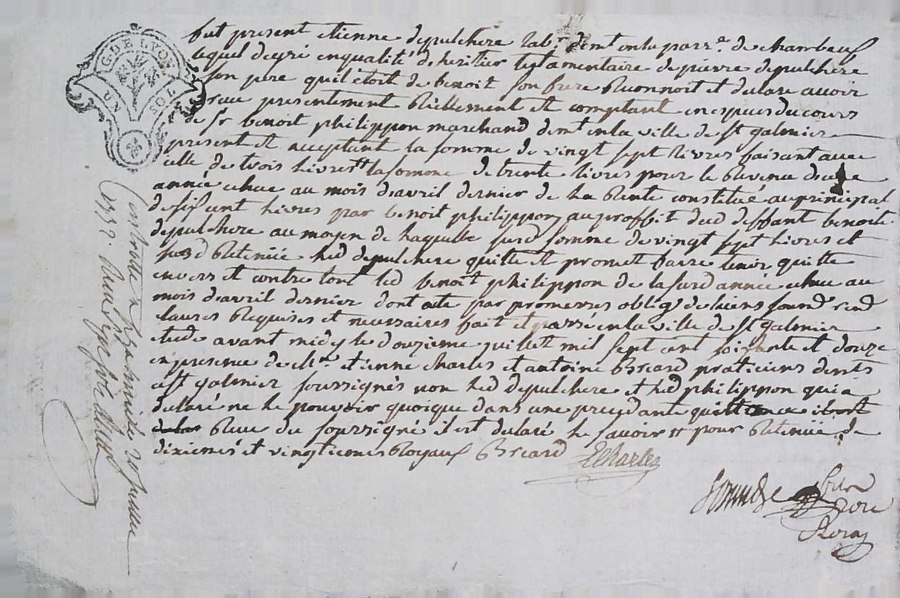 G. DE LYON
UN SOL
fut present etienne depulchere lab.r demt en la parr.e de chambeuf
lequel de gré en qualité de heritier testamentaire de pierre depulchere
son pere quil etoit de benoit son frere Reconnoit et declare avoir
receu presentement Reellement et comptant en espesses du cours
de Sr benoit philippon marchand demt en la ville de St galmier
present et acceptant la somme de vingt sept livres faisant avec
celle de trois livres la somme de trente livres pour le Revenu d'une
année echue au mois d'avril dernier de la Rente constitué au principal
de six cent livres par benoit philippon au proffit dud deffunt benoit
depulchere au moyen de laquelle susd somme de vingt sept livres et
Retenüe led depulchere quitte et promet faire tenir quitte
envers et contre tout led benoit philippon de la susd année echue au
mois d'avril dernier dont acte par promesses oblig. de biens soumd. rend
clauses Requises et necessaires fait et passé en la ville de St galmier
etude avant midy le douzieme juillett mil sept cent soixante et douze
en presence de Mr. etienne Charles et antoine Breard praticiens demts
a St galmier soussignés non led depulchere et led philippon qui a
declaré ne le pouvoir quoique dans une precedante quittance
Receue du soussigné il est declaré le savoir pour Retenüe de
dixiemes et vingtiemes Royaux Breard Charles
Controllé a